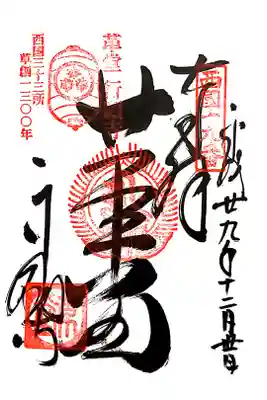 平成廿九年十二月
奉拝
西国十九番
革堂
行願寺
西国三十三所
草創一三〇〇年